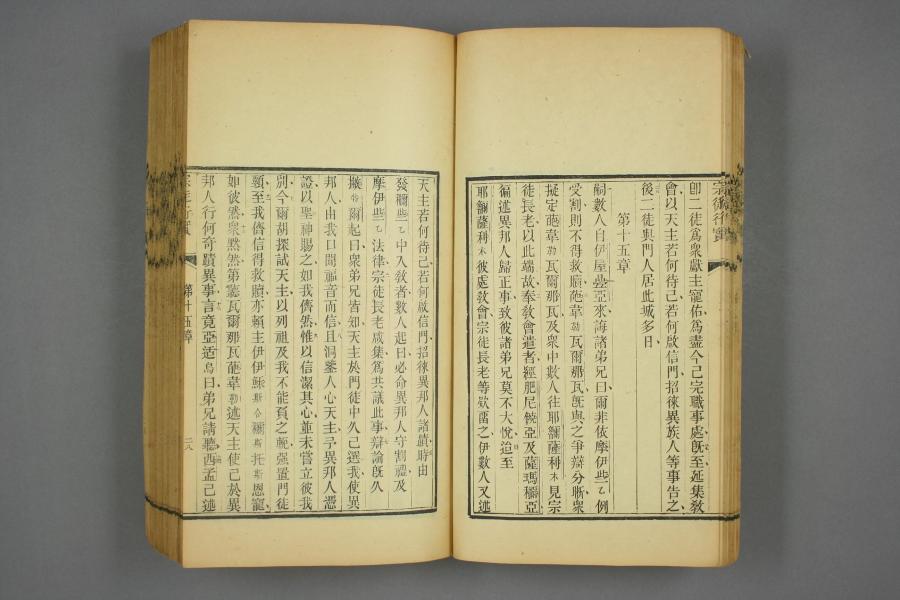 宗徒行實
卽二徒爲衆獻主寵佑爲盡今己完職事處旣至延集敎
會以天主若何待己若何啟信門招徠異族人等事告之
後二徒與門人居此城多日
第十五章
嗣數人自伊屋疊亞來誨諸弟兄曰爾非依摩伊些乙例
受割則不得救贖葩韋勒瓦爾那瓦旣與之爭辯分晰衆
擬定葩韋勒瓦爾那瓦及衆中數人往耶爾薩利木見宗
徒長老以此端故奉敎會遣者經肥尼饒亞及薩瑪穪亞
徧述異邦人歸正事致彼諸弟兄莫不大悅迨至
耶爾薩利木彼處敎會宗徒長老等欵畱之伊數人又述
天主若何待己若何啟信門招徠異邦人諸蹟時由
發爾些乙中入敎者數人起曰必命異邦人守割禮及
摩伊些乙法律宗徒長老咸集爲共議此事辯論旣久
撇特爾起曰衆弟兄皆知天主於門徒中久己選我使異
邦人由我口聞福音而信且洞鑒人心天主予異邦人憑
證以聖神賜之如我儕然惟以信潔其心並未嘗立彼我
別今爾胡探試天主以列祖及我不能負之軛强置門徒
頸至我儕信得救贖亦賴主伊伊穌斯合爾烏托斯恩寵
如彼然衆黙然第聽瓦爾那瓦葩韋勒述天主使己於異
邦人行何奇蹟異事言竟亞适烏曰弟兄請聽西孟己述
宗徒行實
第十五章
二八